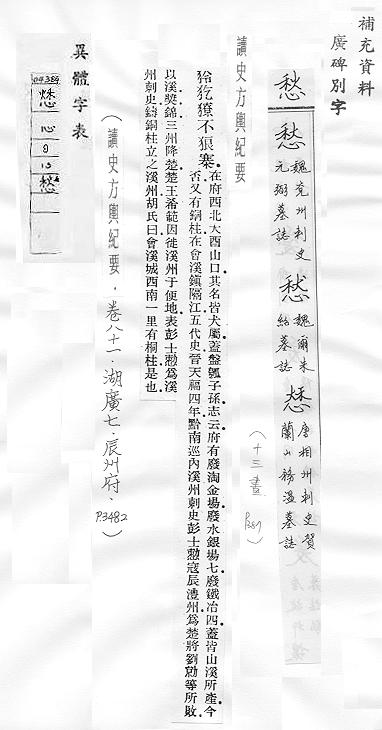 補充資料
廣碑別字
愁
愁 魏兗州刺史
元弼墓誌
愁 魏爾朱
紹墓誌
唐相州刺史賀
蘭山務溫墓誌
(十三畫
P.287)
讀史方輿紀要
犵獠不狼寨。在府西北大酉山口其名皆犬屬蓋盤瓠子孫志云府有廢淘金場廢水銀場七廢鐵冶四蓋皆山溪所產今
否又有銅柱在會溪鎮隔江五代史晉天福四年黔南巡內溪州刺史彭士愁寇辰澧州為楚將劉勍等所敗
以溪獎錦三州降楚楚王希範因徙溪州于便地表彭士愁為溪
州刺史鑄銅柱立之溪州胡氏曰會溪城西南一里有桐柱是也
(讀史方輿紀要．卷八十一．湖廣七．辰州府．P.3482)
異體字表
04389
心
9
13
愁